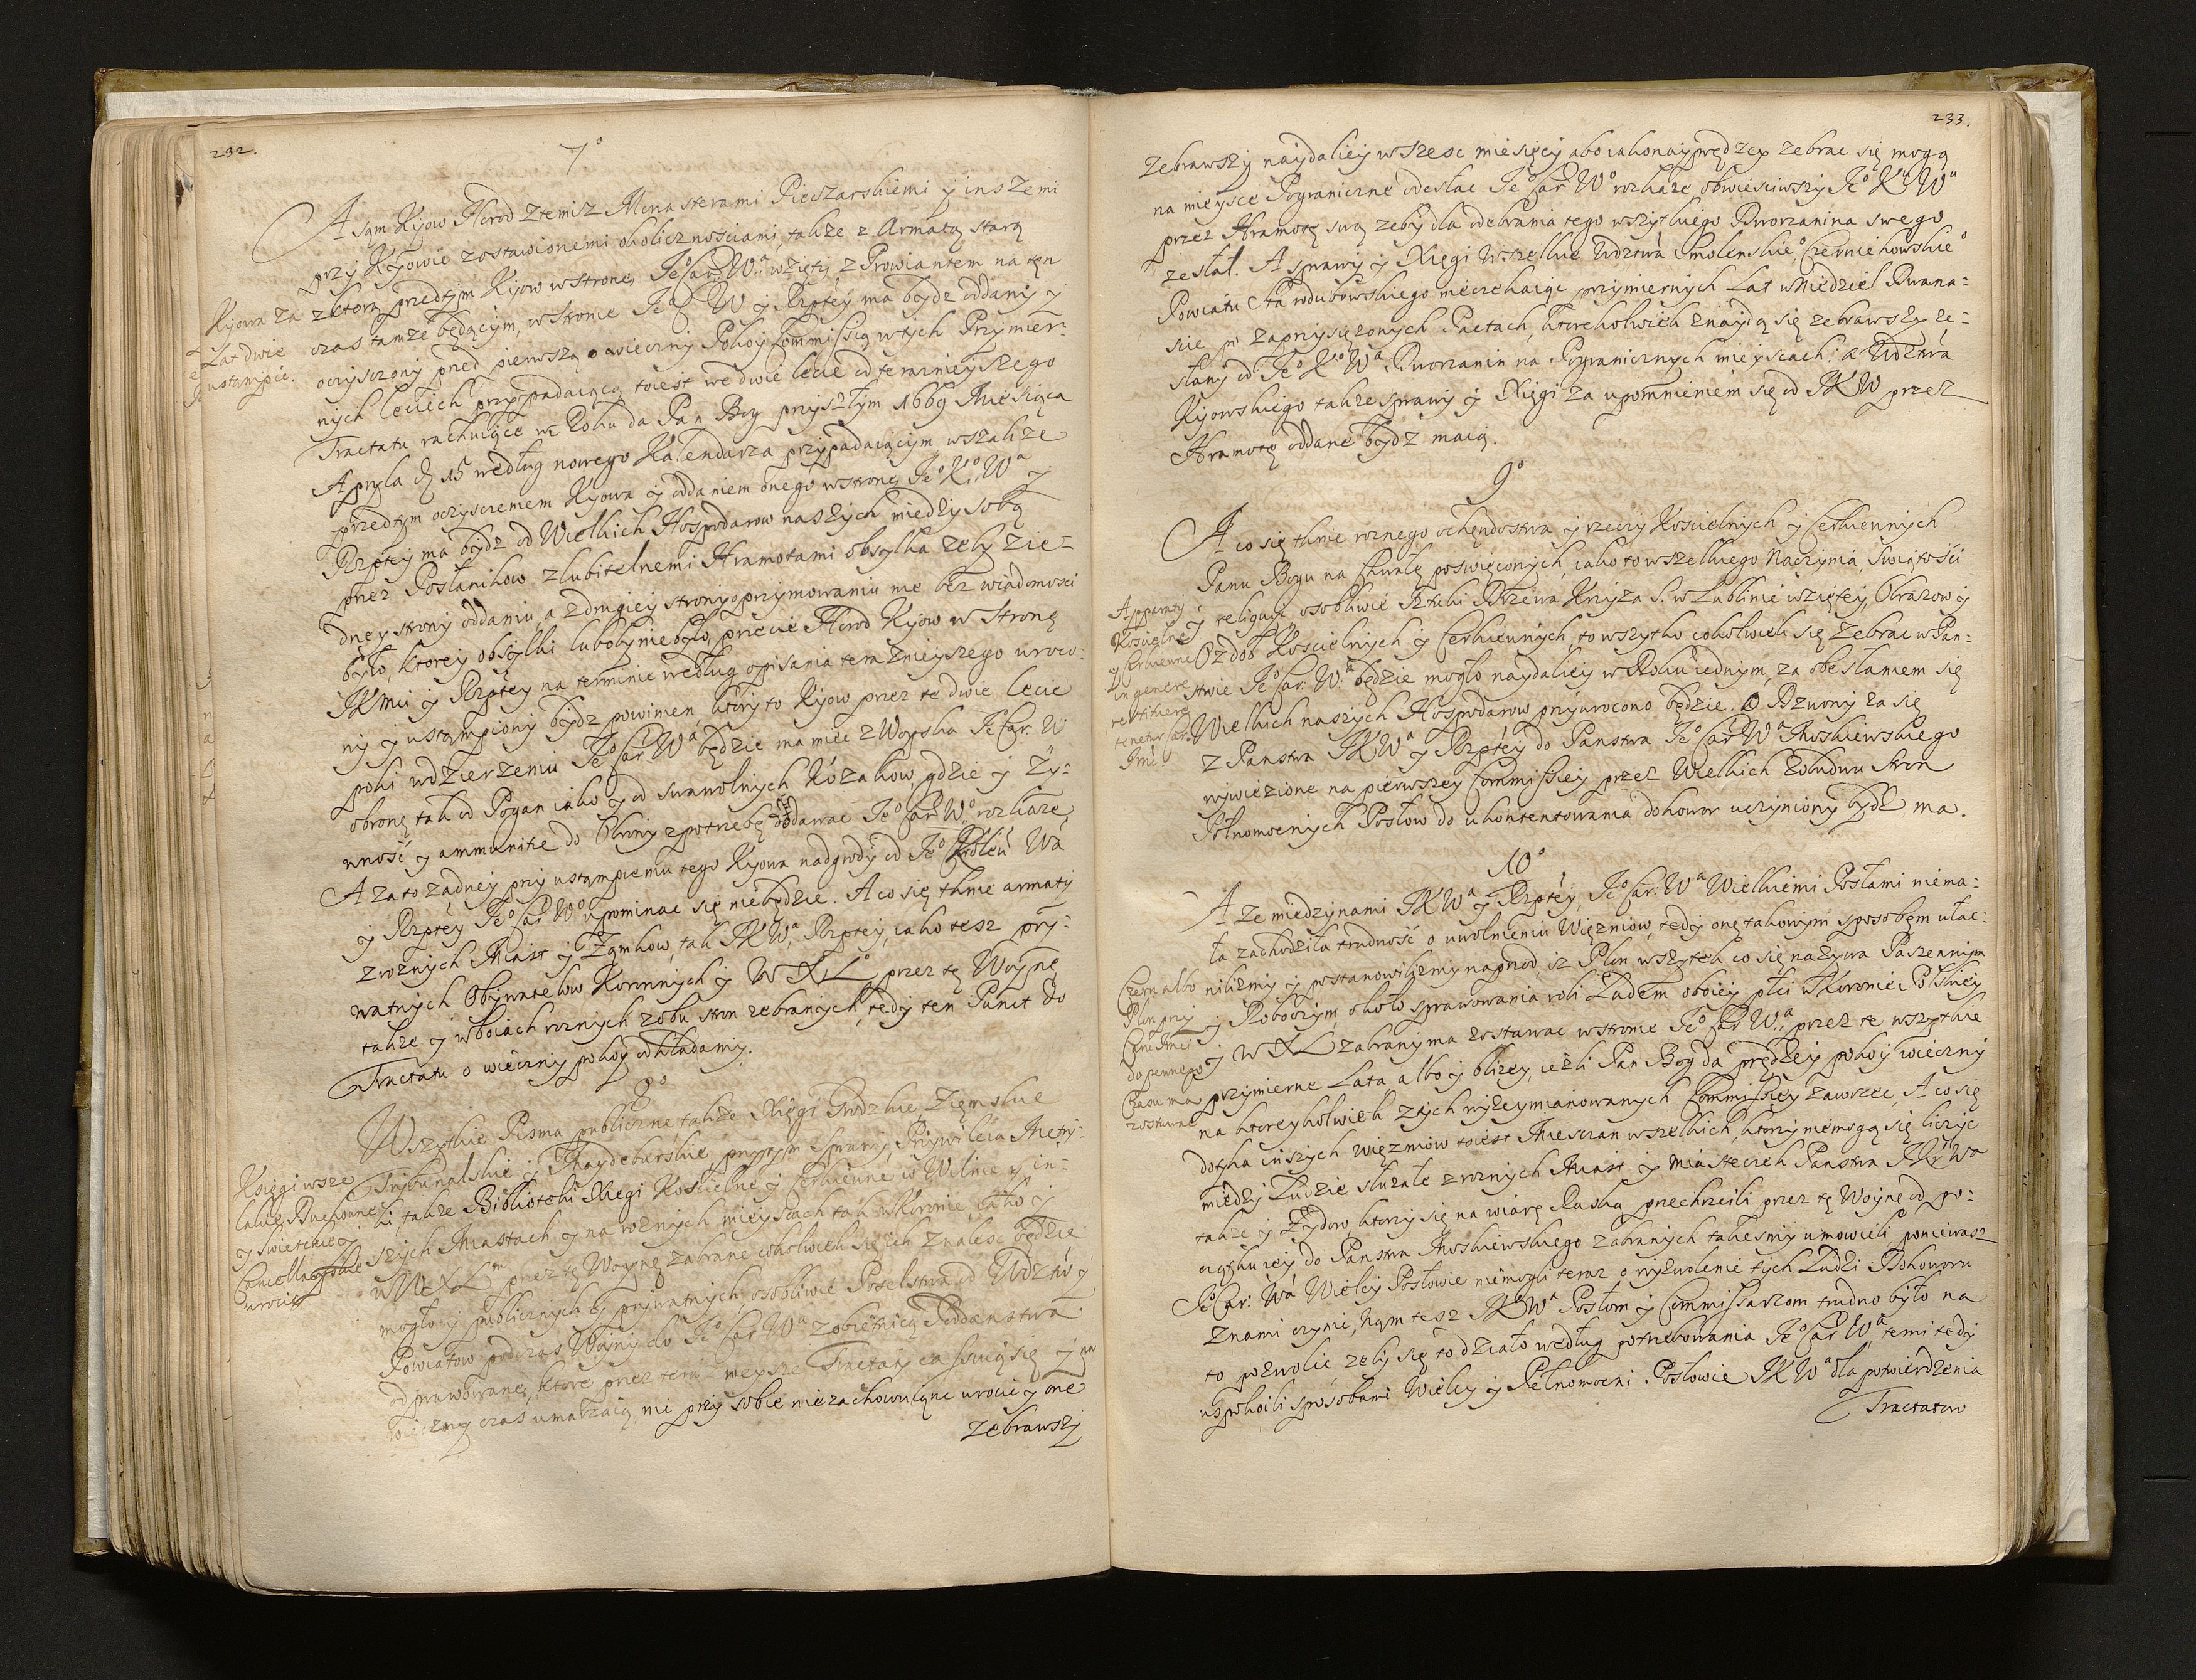 232.
7º
A sąm Kijow Horod z temiz Monasterami Pieczarskiemi y inszemi
przy Kijowie zostawionemi okolicznosciami, także z Armatą starą
z ktorą przedtym Kijow w stronę Jeº Car: Wª wzięty, z Prowiantem na tęn
czas tamże będącym, w stronie J C W y Rzptey ma bydz oddany y
oczysczony przed pierwszą o wieczny Pokoy Commissią w tych Przymier:
nych leciech przypadaiącą toiest we dwie lecie od teraznieyszego
Tractatu rachuiące w Roku da Pan Bog przyszłym 1669 Miesiąca
Apryla d 15 według nowego Kalendarza przypadaiącym wszakże
przedtym oczysceniem Kijowa y oddaniem onego w stronę Jeº Kº Wª y
Rzptey ma bydz od Wielkich Hospodarow naszych miedzy sobą
przez Posłanikow z lubitelnemi Hramotami obsyłka zeby zie=
dney strony oddaniu, a z drugiey strony o przymowaniu nie bez wiadomosci
było, ktorey obsyłki lubo by nie było, przecie Horod Kijow w Stronę
JKMci y Rzptey na terminie według opisania teraznieyszego uroco=
ny y ustąmpiony bydz powinien, ktory to Kijow przez te dwie lecie
poki w dzierzeniu Jeº Car Wª będzie ma miec z Woyska Je Car: W
obronę tak od Pogan iako y od swawolnych Kozakow, gdzie y Zy=
wność y ammunitie do Obrony z potrzebę dodawac Jeº Car Wº rozkaze,
A za to zadney przy ustąmpieniu tego Kijowa nadgrody od Jeº Króleú Wª
y Rzptey Jeº Car Wº upominac się niebędzie. A co się tknie armaty
z roznych Miast y Zamkow, tak JKWª, Rzptey, iako tesz pry=
watnych Obywatelow Koronnych y W X Lº przez tę Woynę
takze y w boiach roznych z obu stron zebranych, tedy ten Punct do
Tractatu o wieczny pokoy odkładamy.
Kijowa za
Lat dwie
ustąmpic.
8º
Wszytkie Pisma publiczne, takze Xięgi Grodzkie, Ziemskie
Trybunalskie y Maydeburskie, przytym sprawy, Przywileia Metry=
ki, także Biblioteki Xiegi Koscielne y Cerkiewne w Wilnie y in=
szych Miastach y na roznych mieyscach tak w Koronie iako y
w W X L przez tę Woynę zabrane cokolwiek się ich znalesc będzie
mogło y publicznych y prywatnych, osobliwie Poselstwa od Wdztw y
Powiatow podczas Woyny do Jeº Car Wª z obietnicą Poddanstwa
odprawowane, ktore przez terazneysze Tractaty cassuią się y na
wieczny czas umarzaią, nie przy sobie niezachowuiąc urocic y one
Zebrawszy
Ksiegi wsze
lakie Duchowne
y Swietckie y
Cancellaryskie
urocic
233.
Zebrawszy naydaliey w szesc miesięcy abo iako nayprędzey zebrac się mogą
na mieysce Pograniczne odesłac Jeº Car Wº rozkaze obwiesciwszy Jeº Kª Wª
przez Hramotę swą zeby dla odebrania tego wszytkiego Dworzanina swego
zesłał. A sprawy y Xięgi Wszelkie Wdztwa Smolenskieº Czerniehowskieº
Powiatu Starodubowskiego nieczekaiąc przymiernych Lat w Niedziel Dwana=
scie po zaprzysięzonych Pactach, ktorekolwiek znaydą się zebrawszy ze=
słany od Jeº Kº Wª Dworzanin na Pogranicznych mieyscach: a Wdztwa
Kijowskiego takze sprawy y Xięgi za upomnieniem się od JKW przez
Hramotę oddane bydz maią.
9º
A co się tknie roznego ochęndostwa y rzeczy Koscielnych y Cerkiewnych
Panu Bogu na chwałę poswięconych, iako to wszelkiego Naczynia, Swiątości
y reliquij, osobliwie Sztuki Drzewa Krzyza S. w Lublinie wziętey, Obrazow y
Ozdob Koscielnych y Cerkiewnych, to wszytko cokolwiek się zebrac w Pan=
stwie Jeº Car: W:ª będzie mogło naydaliey w Roku iednym, za obesłaniem się
Wielkich naszych Hospodarow przywrocono będzie. O Dzwony za się
z Panstwa JKWª y Rzptey do Panstwa Jeº Car Wª Moskiewskiego
wywiezione na pierwszey Commissiey przez Wielkich z obudwu stron
Pełnomocnych Posłow do ukontentowania dohowor uczyniony bydz ma.
Apparaty
Koscielne
y Cerkiewne
in genere
restituere
tenetur Car.
Jmć
10º
A ze miedzynami JKWª y Rzptey, Jeº Car: Wª Wielkiemi Posłami niema=
ła zachodziła trudność o uwolnieniu Więzniow, tedy onę takowym sposobęm ułac=
nilismy y postanowilismy naprzod, iz Plon wszytek co się nazywa Paszennym
y Roboczym około sprawowania roli Ludem oboiey płci w Koronie Polskiey
y W X L zabrany ma zostawac w stronie Jeº Car Wª, przez te wszytkie
przymierne Lata, albo y blizey, iezli Pan Bog da prędzey pokoy wieczny
na ktoreykolwiek z tych wyzeymianowanych Commissiey zawrzec, A co się
dotyka inszych więzniow toiest Miesczan wszelkich, ktorzy niemogą się liczyc
miedzy Ludzie słuzałe z roznych Miast y Miasteczek Panstwa JKº Wª
takze y Zydow ktorzy się na wiarę Ruską przechrzcili przez tę Woynę od po=
czątku iey do Panstwa Moskiewskiego zabranych takesmy umowieli, poniewasz
Jeº Car: Wª Wielcy Posłowie niemogli teraz o wyzwolenie tych Ludzi Dohoworu
z nami czynic, Nąm tesz JKº Wª Posłom y Commissarzom trudno było na
to pozwolic zeby się to działo według potrzebowania Jeº Car Wª, temi tedy
uspokoili sposobami Wielcy y Pełnomocni Posłowie JK Wª dla potwierdzenia
Tractatow
Czern albo
Plon przy
Car: Jmci
do pewnego
Czasu ma
zostawac